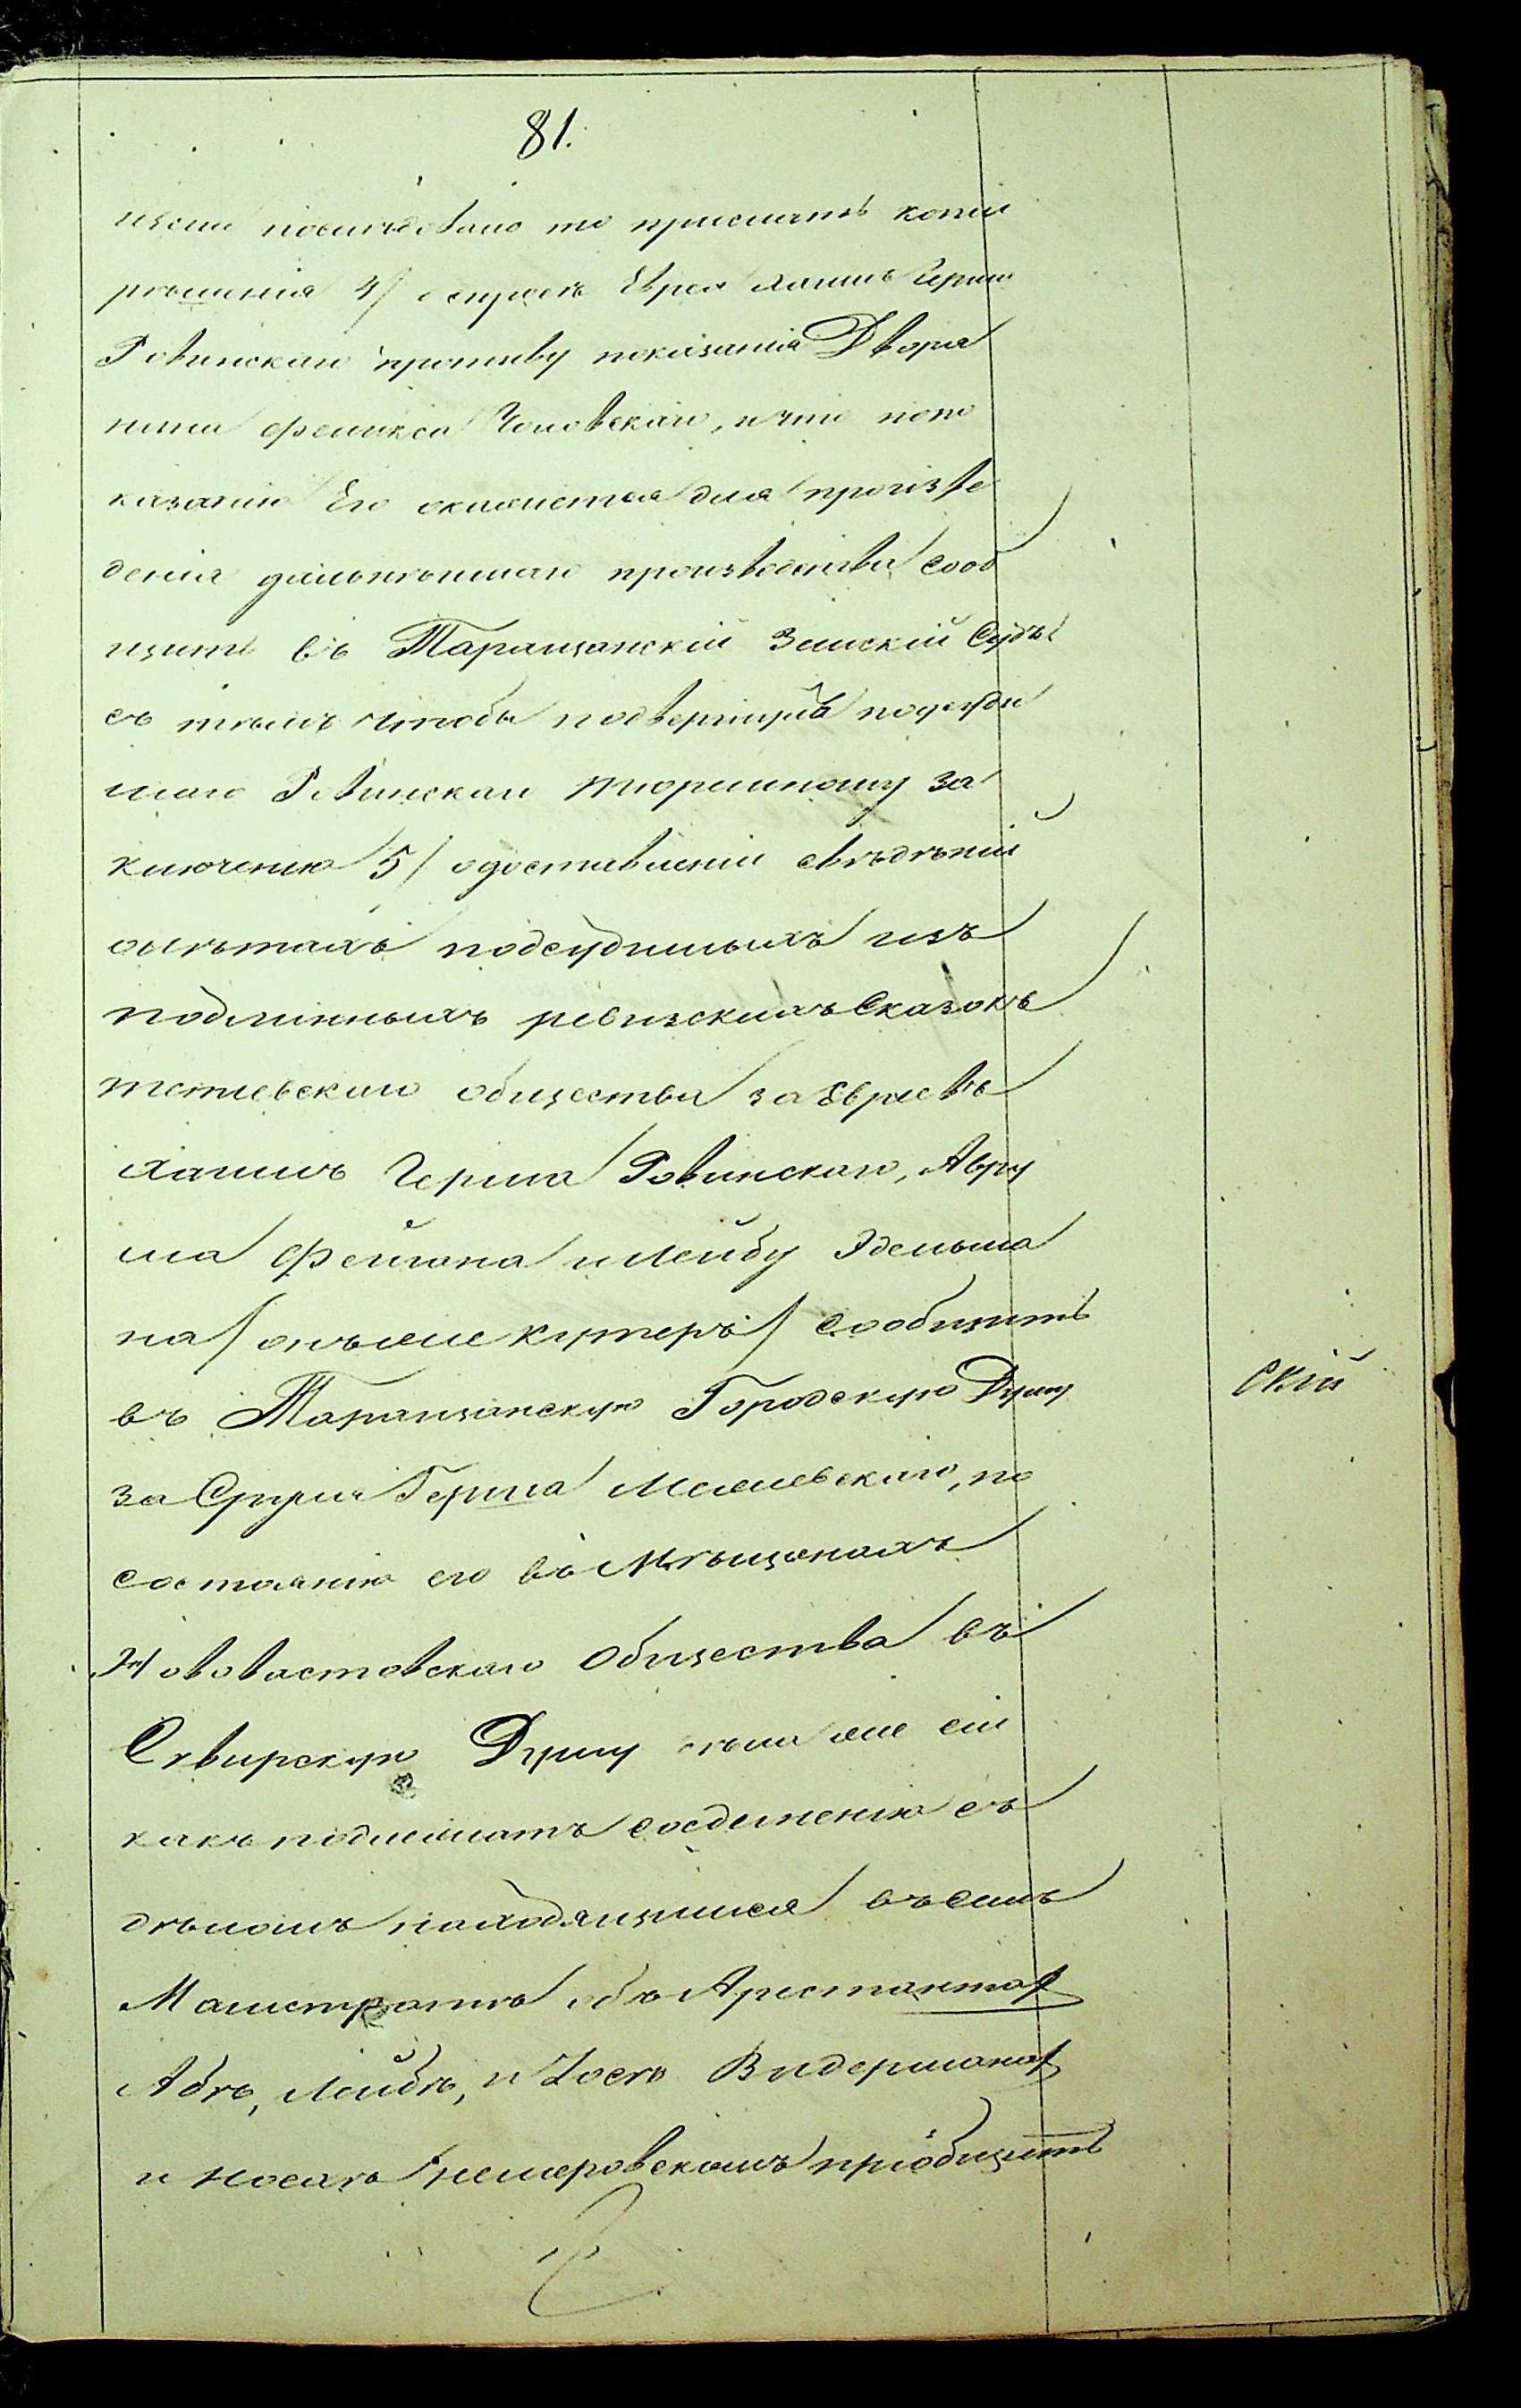 81.
послѣдовало то прислать копіи
рѣшенія 4/ о спросѣ Еврея Хаима Герша
Ровинскаго противу показанія Дворя
нина Феликса Чоловскаго, и что по по
казанію Его окажется для произве
денія дальнѣйшаго производства сооб
щить въ Таращанскій Земскій Судъ
съ тѣмъ чтобы подвергнулъ подсуди
маго Ровинскаго тюремному за
ключенію 5/ о доставленіи свѣдѣній
о лѣтахъ подсудимыхъ изъ
подлинныхъ ревизскихъ Сказокъ
тетіевскаго общества за Евреевъ
Хаимъ Герша Ровинскаго, Авру
ма Феймана и Лейбу Эдельма
на / онъ же кучеръ / сообщить
въ Таращанскую Городскую Думу
скій
за Сруля Герша Межіевскаго, по
состоянію его въ Мѣщанахъ
Ново Хвастовскаго Общества въ
Сквирскую Думу дѣла же сіи
какъ подлежатъ соединенію съ
дѣломъ находящимся въ семъ
Магистратѣ объ Арестантах
Абѣ, Лейбѣ, и Іосѣ Видерманах
и Носахъ Немировскомъ пріобщить